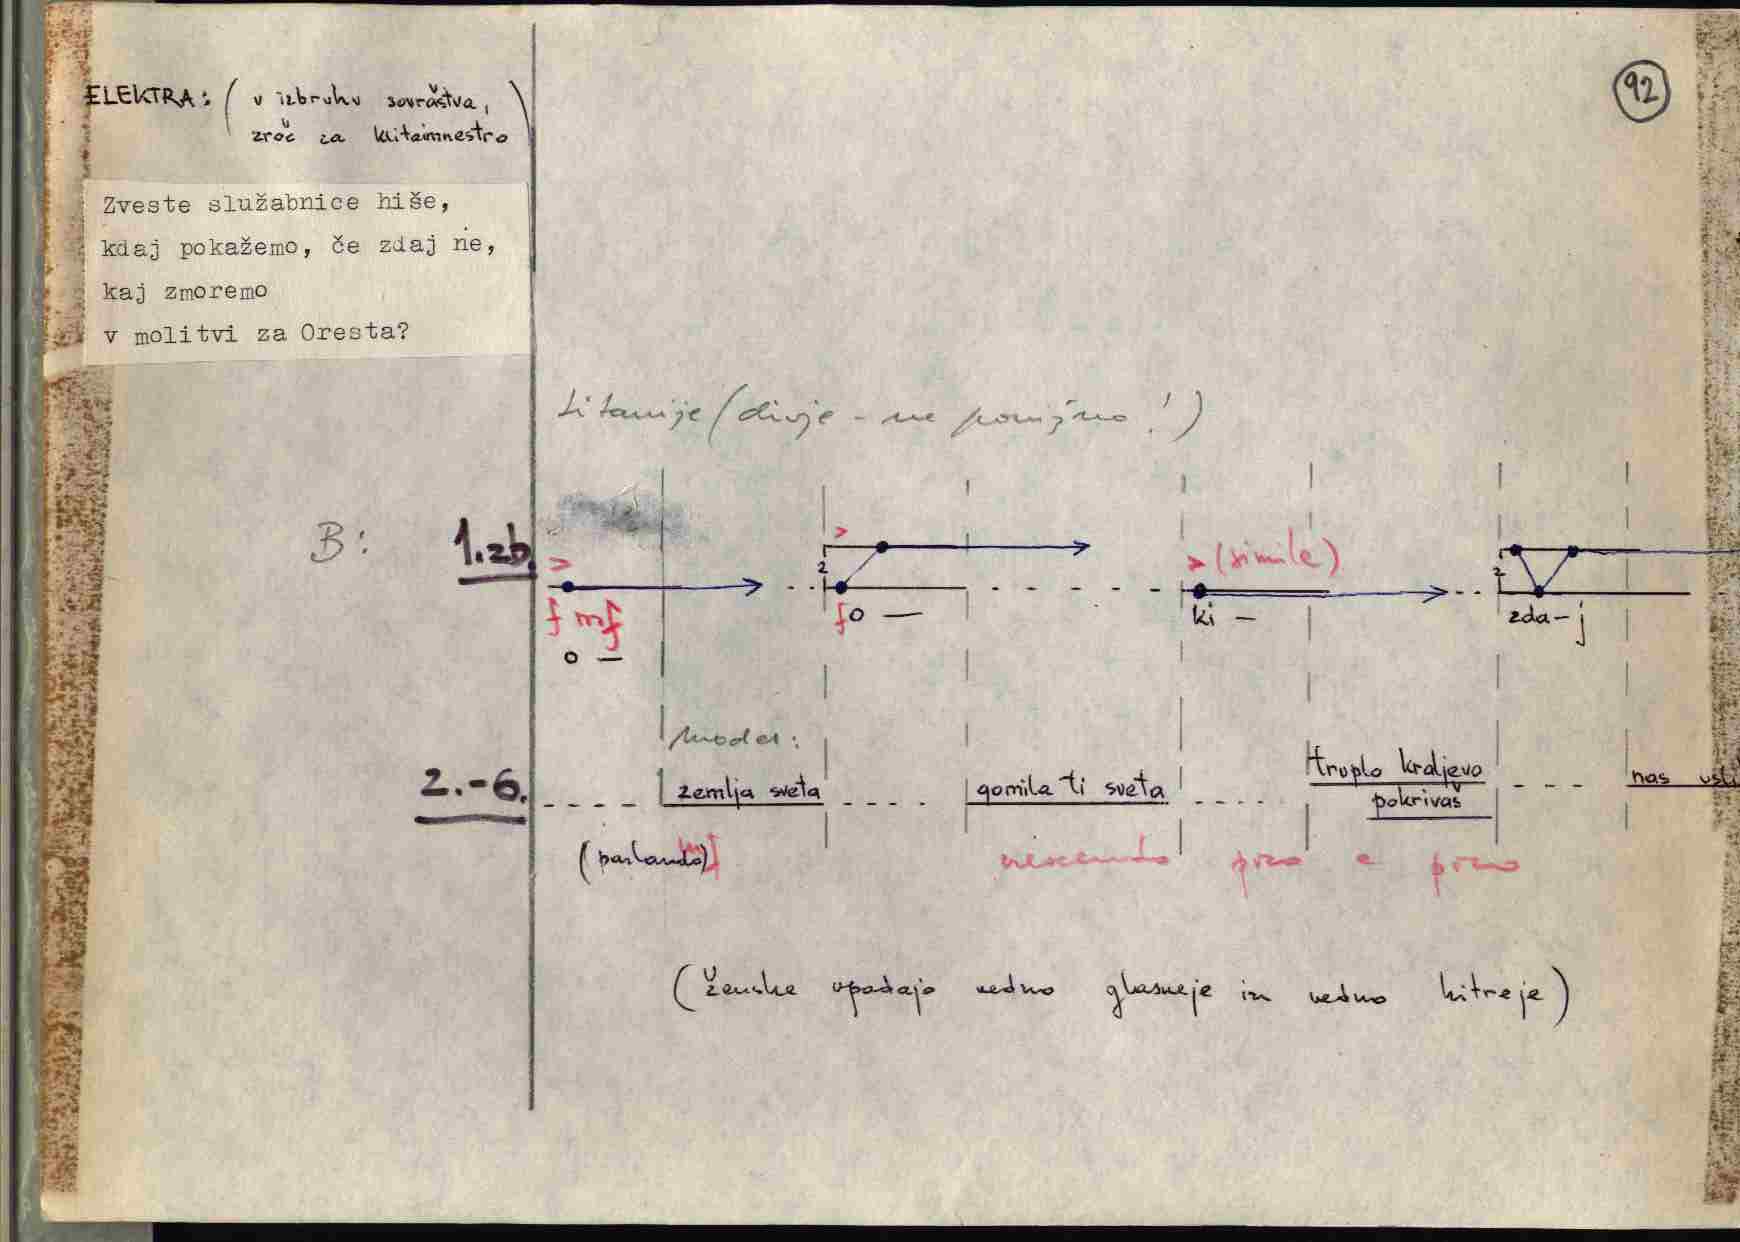 92
ELEKTRA: (v izbruhu sovraštva,
zroč za klitaimnestro)
Zveste služabnice hiše,
kdaj pokažemo, če zdaj ne,
kaj zmoremo
v molitvi za Oresta?
Litanije (divje - ne ponižno!)
B: 1. zb.
> > > (simile)
2 2
f mf f o — ki — zda-j
o —
2.-6. zemlja sveta gomila ti sveta truplo kraljevo nas usli
pokrivaš
(parlando) mf crescendo poco a poco
(ženske vpadajo vedno glasneje in vedno hitreje)